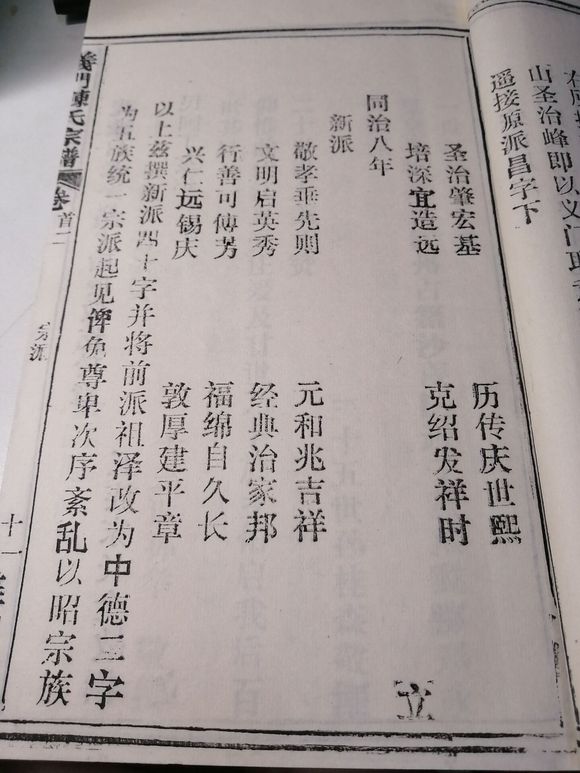 山圣治峰即以义门
遥接原派昌字下
圣治肇宏基 历传庆世熙
培深宜造远 克绍发祥时
同治八年 立
新派
敬孝垂先则 元和兆吉祥
文明启英秀 经典治家邦
行善可傳芳 福绵自久长
兴仁远锡庆 敦厚建平章
以上兹撰新派四十字并将前派祖泽改为中德三字
为五族统一宗派起见俾免尊卑次序紊乱以昭宗族
義門陳氏宗譜 卷首二 宗派 十一